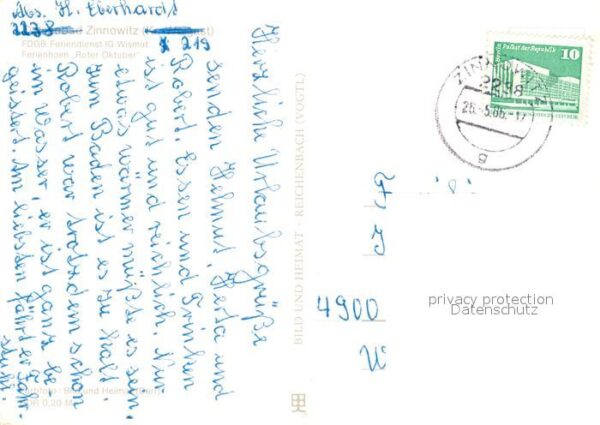 Abs. H. Eberhardt
Zinnowitz
2238
FDGB-Feriendienst IG Wismut
Ferienheim „Roter Oktober"
219
Herzliche Urlaubsgrüße
senden Helmut, Herta und
Robert. Essen und Trinken
ist gut und reichlich. Nur
etwas wärmer müßte es sein.
Zum Baden ist es zu kalt
Robert war trotzdem schon
im Wasser, er ist ganz be-
geistert. Am liebsten fährt er Fahr-
stuhl.
und Heimat
0,20 M
BILD UND HEIMAT · REICHENBACH (VOGTL)
Palast der Republik
10
ZINNOWITZ
2238
g
F
J
4900
W
privacy protection
Datenschutz